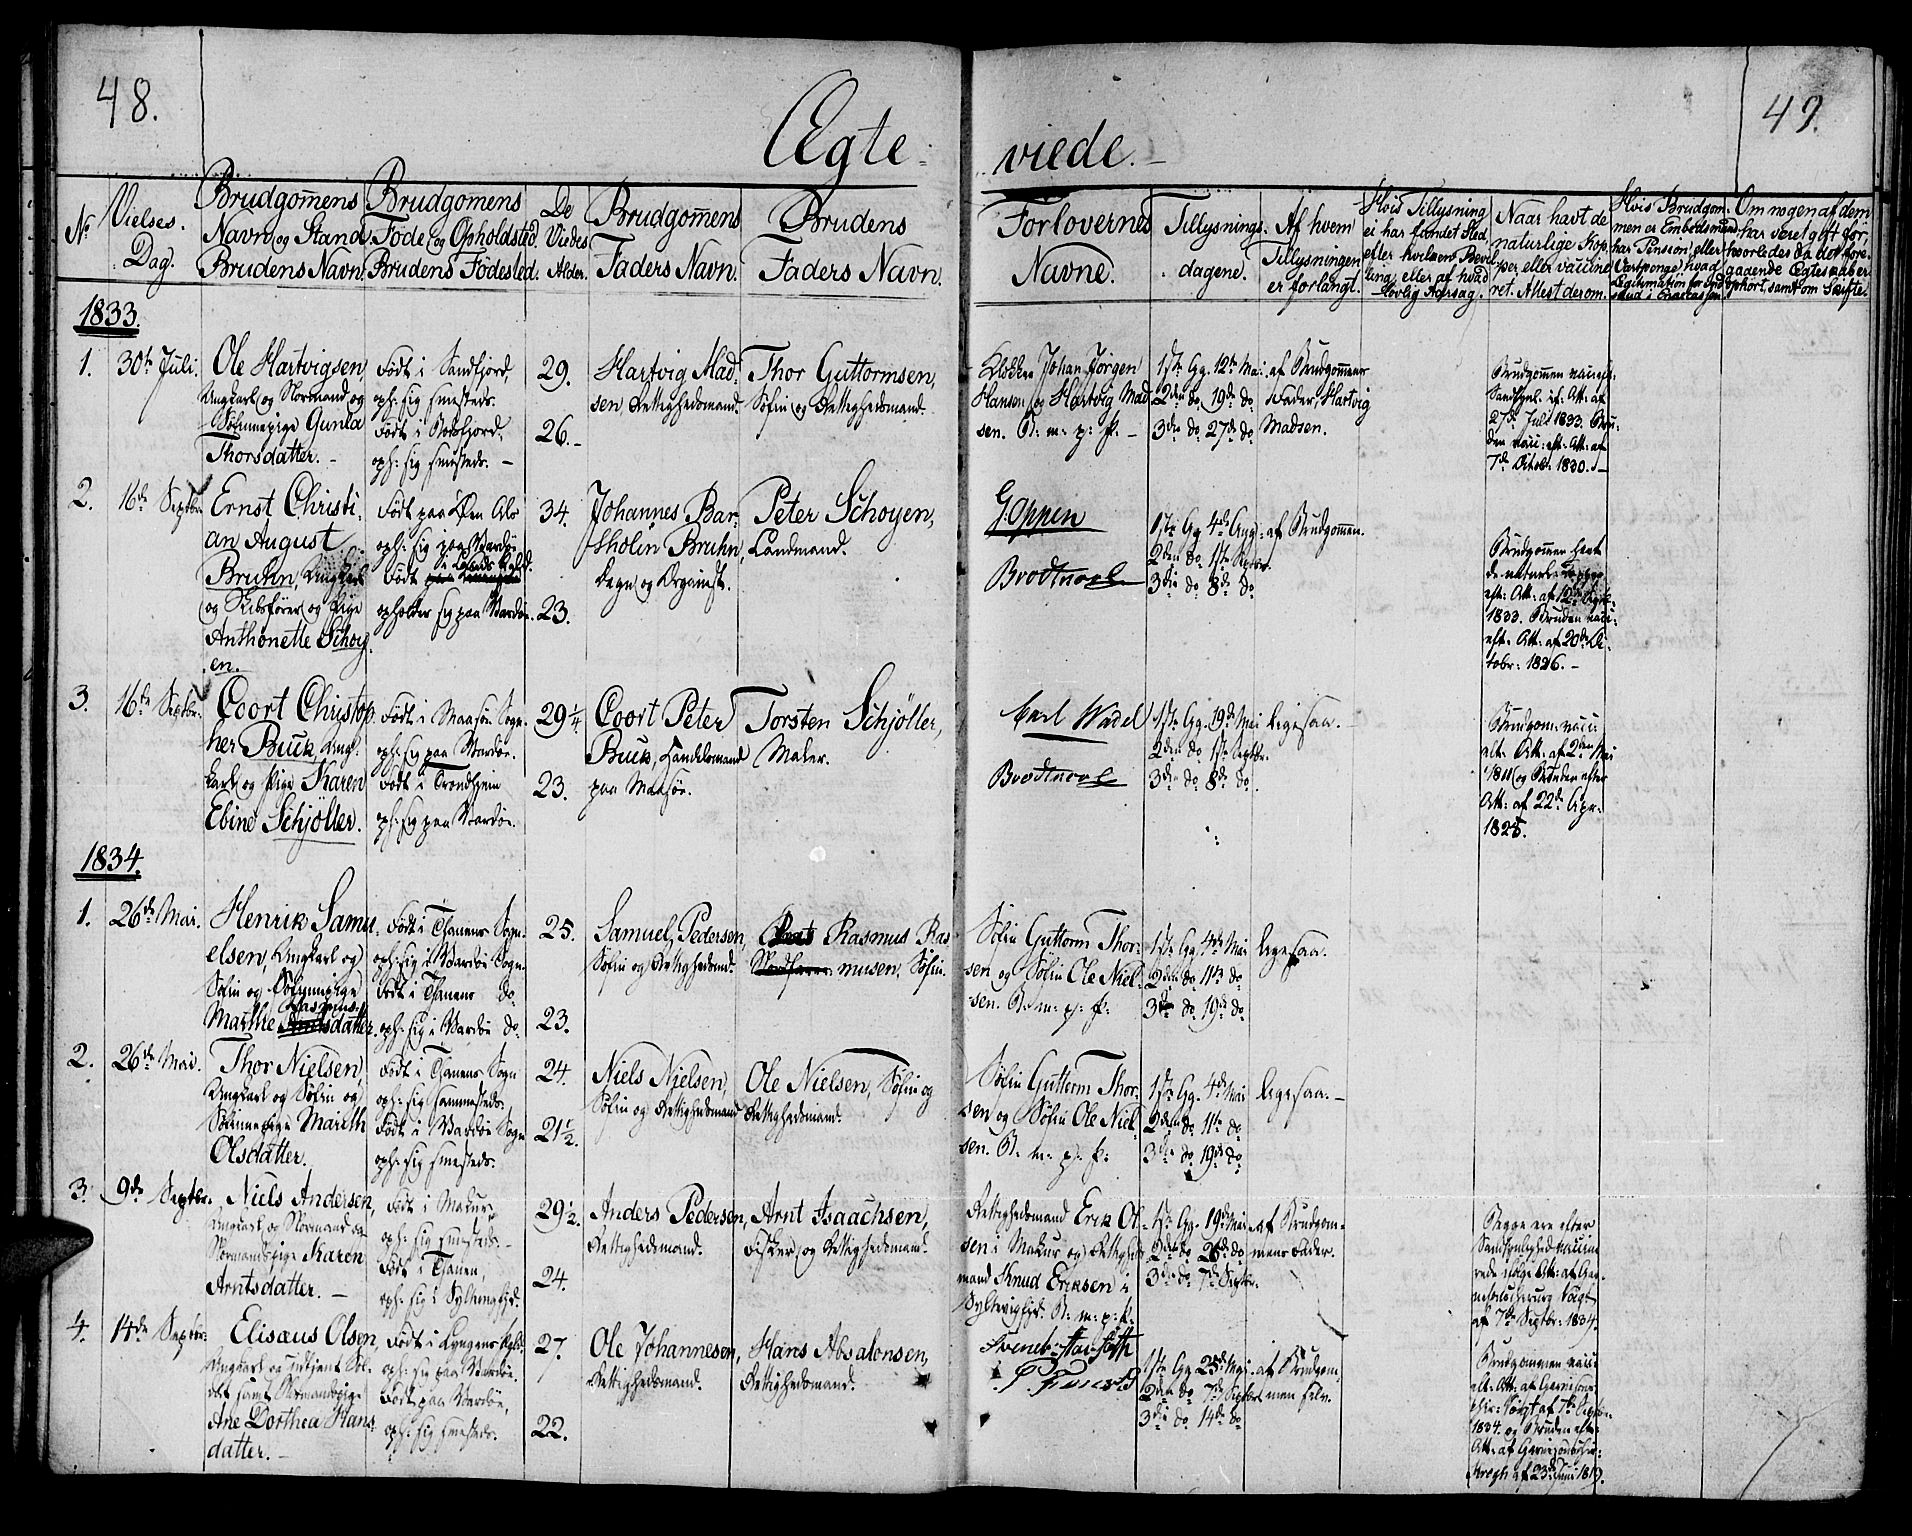 48.
49.
Ægte-
viede. -
No
Vielses.
Dag.
Brudgom̄ens
Navn og Stand
Brudens Navn.
Brudgom̄ens
Føde og Opholdsted.
Brudens Fødested.
De
Viedes
Alder.
Brudgom̄ens
Faders Navn.
Brudens
Faders Navn.
Forlovernes
Navne.
Tillysnings-
dagene.
Af hvem
Tillysningen
er forlangt.
Hvis Tillysning
ei har fundet Sted,
efter hvilken Bevil-
ling, eller af hvad
lovlig Aarsag.
Naar havt de
naturlige Kop-
per eller vaccine-
ret. Attest derom.
Hvis Brudgom-
men er Embedsmand
har Pension eller
Vartpenge, hvad
Legitimation for Ind-
skud i Enkekassen.
Om nogen af dem
har været gift før,
hvorledes da det fore-
gaaende Ægteskab er
ophørt, samt om Skifte.
1833.
1. 30te Juli.
Ole Hartvigsen,
Ungkarl og Normand og
Søfinnepige Gunla
Thorsdatter. -
Født i Sandfjord,
oph: sig smesteds.
Født i Bossfjord,
oph: sig smesteds. -
29.
26. -
Hartvig Mad-
sen, Rettighedsmand.
Thor Guttormsen,
Søfin og Rettighedsmand.
Klokker Johan Jørgen
Hansen og Hartvig Mad
sen. B: m: p: P. -
1ste Gg. 12te Mai
2den do 19de do
3die do 27de do
af Brudgommens
Fader, Hartvig
Madsen.
27de Juli 1833. Bru-
den vacc: eft: Att: af
7de Octob: 1830. -
2. 16de Septbr.
Ernst Christi-
an August
Bruhn, Ungkarl
og Skibsfører og Pige
Anthonette Schoy-
en. -
Født paa Øen Als
oph: sig paa Vardøe
Født
opholder sig paa Vardøe.
34.
23.
Johannes Bar-
tholin Bruhn,
Degn og Organist.
Peter Schoyen,
Landmand.
G. Oppen
Brodtkorb
1ste Gg 4de Aug:
2den do 1ste Septbr.
3die do 8de do
af Brudgommen.
Brudgommen havt
de naturl: Kopper
eft: Att: af 12te
1833. Bruden vacc:
eft: Att: af 20de Oc-
tobr: 1826. -
3. 16de Septbr.
Coort Christop-
her Buck, Ung-
karl og Pige Karen
Ebine Schjöller.
Født i Maasøe Sogn
oph: sig paa Vardøe.
Født i Trondhjem
oph: sig paa Vardøe.
29 1/4.
23.
Coort Peter
Buck, Handelsmand
paa Maasøe.
Torsten Schjöller,
Maler.
Carl Wadel
Brodtkorb
1ste Gg. 19de Mai
2den do 1ste Septbr.
3die do 8de do.
ligesaa. -
Brudgom: vacc:
eft: Att: af 2den Mai
1811 og Bruden efter
Att: af 22de Apr:
1825.
1834.
1. 26de Mai.
Henrik Samu-
elsen, Ungkarl og
Søfin og Søfinnepige
Rasmus-
Marthe Arntsdatter.
Født i Thanens Sogn.
oph: sig i Vardøe Sogn.
Født i Thanens do
oph: sig i Vardøe do.
25.
23.
Samuel Pedersen,
Søfin og Rettighedsmd.
Rasmus Ras
musen, Søfin.
Søfin Guttorm Thor-
sen og Søfin Ole Niel-
sen. B: m: p: P:
1ste Gg. 4de Mai
2den do 11te do
3die do 19de do.
ligesaa.
2. 26de Mai.
Thor Nielsen,
Ungkarl og Søfin og
Søfinnepige Mareth
Olsdatter.
Født i Thanens Sogn
oph: sig sammesteds.
Født i Vardøe Sogn
oph: sig smesteds.
24.
21 1/2.
Niels Nielsen,
Søfin og Rettighedsmand
Ole Nielsen, Søfin og
Rettighedsmand.
Søfin Guttorm Thor-
sen og Søfin Ole Niel-
sen. B: m: p: P:
1ste Gg. 4de Mai
2den do 11te do
3die do 19de do
ligesaa. -
3. 9de Septbr.
Niels Andersen,
Ungkarl og Normand og
Normandspige Karen
Arntsdatter. -
Født i Makur,
oph: sig smesteds. -
Født i Thanen,
oph: sig i Syltevigfjd.
29 1/2.
24.
Anders Pedersen,
Rettighedsmand.
Arnt Isaachsen,
Fisker og Rettighedsmand.
Rettighedsmand Erik Ol-
sen i Makur og Rettigheds
mand Knud Eriksen i
Syltevigfjd. B: m: p: P:
1ste Gg. 19de Mai
2den do 26de do
3die do 7de Septbr.
af Brudgom-
mens Fader.
Begge ere efter
Sandsynlighed vaccine-
rede ifølge Att: af Gar-
nisonschirurg Vogt
af 7de Septbr: 1834.
4. 14de Septbr:
Elisæus Olsen,
Ungkarl og udtjent Sol-
dat samt Normandspige
Ane Dorthea Hans-
datter. -
Født i Lyngens Pgld.
oph: sig paa Vardøe.
Født paa Vardøe,
oph: sig smesteds.
27.
22.
Ole Johannesen,
Rettighedsmand.
Hans Absalonsen,
Rettighedsmand.
1ste Gg 25de Mai
2den do 7de Septbr
3die do 14de do
af Brudgom-
men selv.
Brudgommen vacc:
eft: Att: af Garnisons
chir: Vogt af 7de Septbr.
1834. og Bruden eft:
Att: af Garnisonschir:
Krogh af 23de Juni 1819.